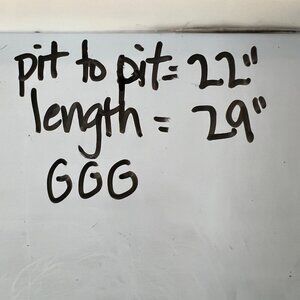 pit to pit= 22"
length = 29"
GGG